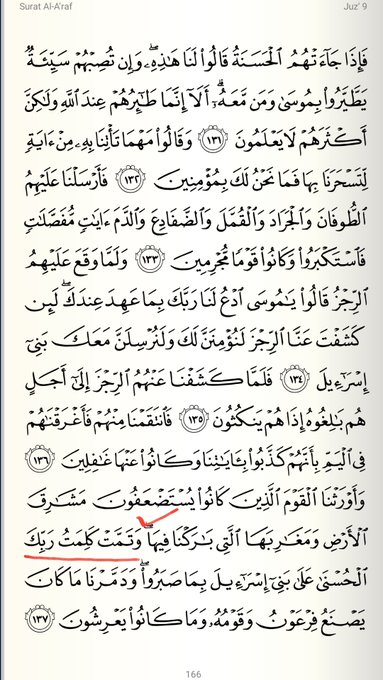 Surat Al-A'raf
Juz' 9
فَإِذَا جَآءَتْهُمُ ٱلْحَسَنَةُ قَالُوا۟ لَنَا هَٰذِهِۦ ۖ وَإِن تُصِبْهُمْ سَيِّئَةٌ
يَطَّيَّرُوا۟ بِمُوسَىٰ وَمَن مَّعَهُۥٓ ۗ أَلَآ إِنَّمَا طَٰٓئِرُهُمْ عِندَ ٱللَّهِ وَلَٰكِنَّ
أَكْثَرَهُمْ لَا يَعْلَمُونَ ١٣١ وَقَالُوا۟ مَهْمَا تَأْتِنَا بِهِۦ مِنْ ءَايَةٍ
لِّتَسْحَرَنَا بِهَا فَمَا نَحْنُ لَكَ بِمُؤْمِنِينَ ١٣٢ فَأَرْسَلْنَا عَلَيْهِمُ
ٱلطُّوفَانَ وَٱلْجَرَادَ وَٱلْقُمَّلَ وَٱلضَّفَادِعَ وَٱلدَّمَ ءَايَٰتٍ مُّفَصَّلَٰتٍ
فَٱسْتَكْبَرُوا۟ وَكَانُوا۟ قَوْمًا مُّجْرِمِينَ ١٣٣ وَلَمَّا وَقَعَ عَلَيْهِمُ
ٱلرِّجْزُ قَالُوا۟ يَٰمُوسَى ٱدْعُ لَنَا رَبَّكَ بِمَا عَهِدَ عِندَكَ ۖ لَئِن
كَشَفْتَ عَنَّا ٱلرِّجْزَ لَنُؤْمِنَنَّ لَكَ وَلَنُرْسِلَنَّ مَعَكَ بَنِىٓ
إِسْرَٰٓءِيلَ ١٣٤ فَلَمَّا كَشَفْنَا عَنْهُمُ ٱلرِّجْزَ إِلَىٰٓ أَجَلٍ
هُم بَٰلِغُوهُ إِذَا هُمْ يَنكُثُونَ ١٣٥ فَٱنتَقَمْنَا مِنْهُمْ فَأَغْرَقْنَٰهُمْ
فِى ٱلْيَمِّ بِأَنَّهُمْ كَذَّبُوا۟ بِـَٔايَٰتِنَا وَكَانُوا۟ عَنْهَا غَٰفِلِينَ ١٣٦
وَأَوْرَثْنَا ٱلْقَوْمَ ٱلَّذِينَ كَانُوا۟ يُسْتَضْعَفُونَ مَشَٰرِقَ
ٱلْأَرْضِ وَمَغَٰرِبَهَا ٱلَّتِى بَٰرَكْنَا فِيهَا ۖ وَتَمَّتْ كَلِمَتُ رَبِّكَ
ٱلْحُسْنَىٰ عَلَىٰ بَنِىٓ إِسْرَٰٓءِيلَ بِمَا صَبَرُوا۟ ۖ وَدَمَّرْنَا مَا كَانَ
يَصْنَعُ فِرْعَوْنُ وَقَوْمُهُۥ وَمَا كَانُوا۟ يَعْرِشُونَ ١٣٧
166